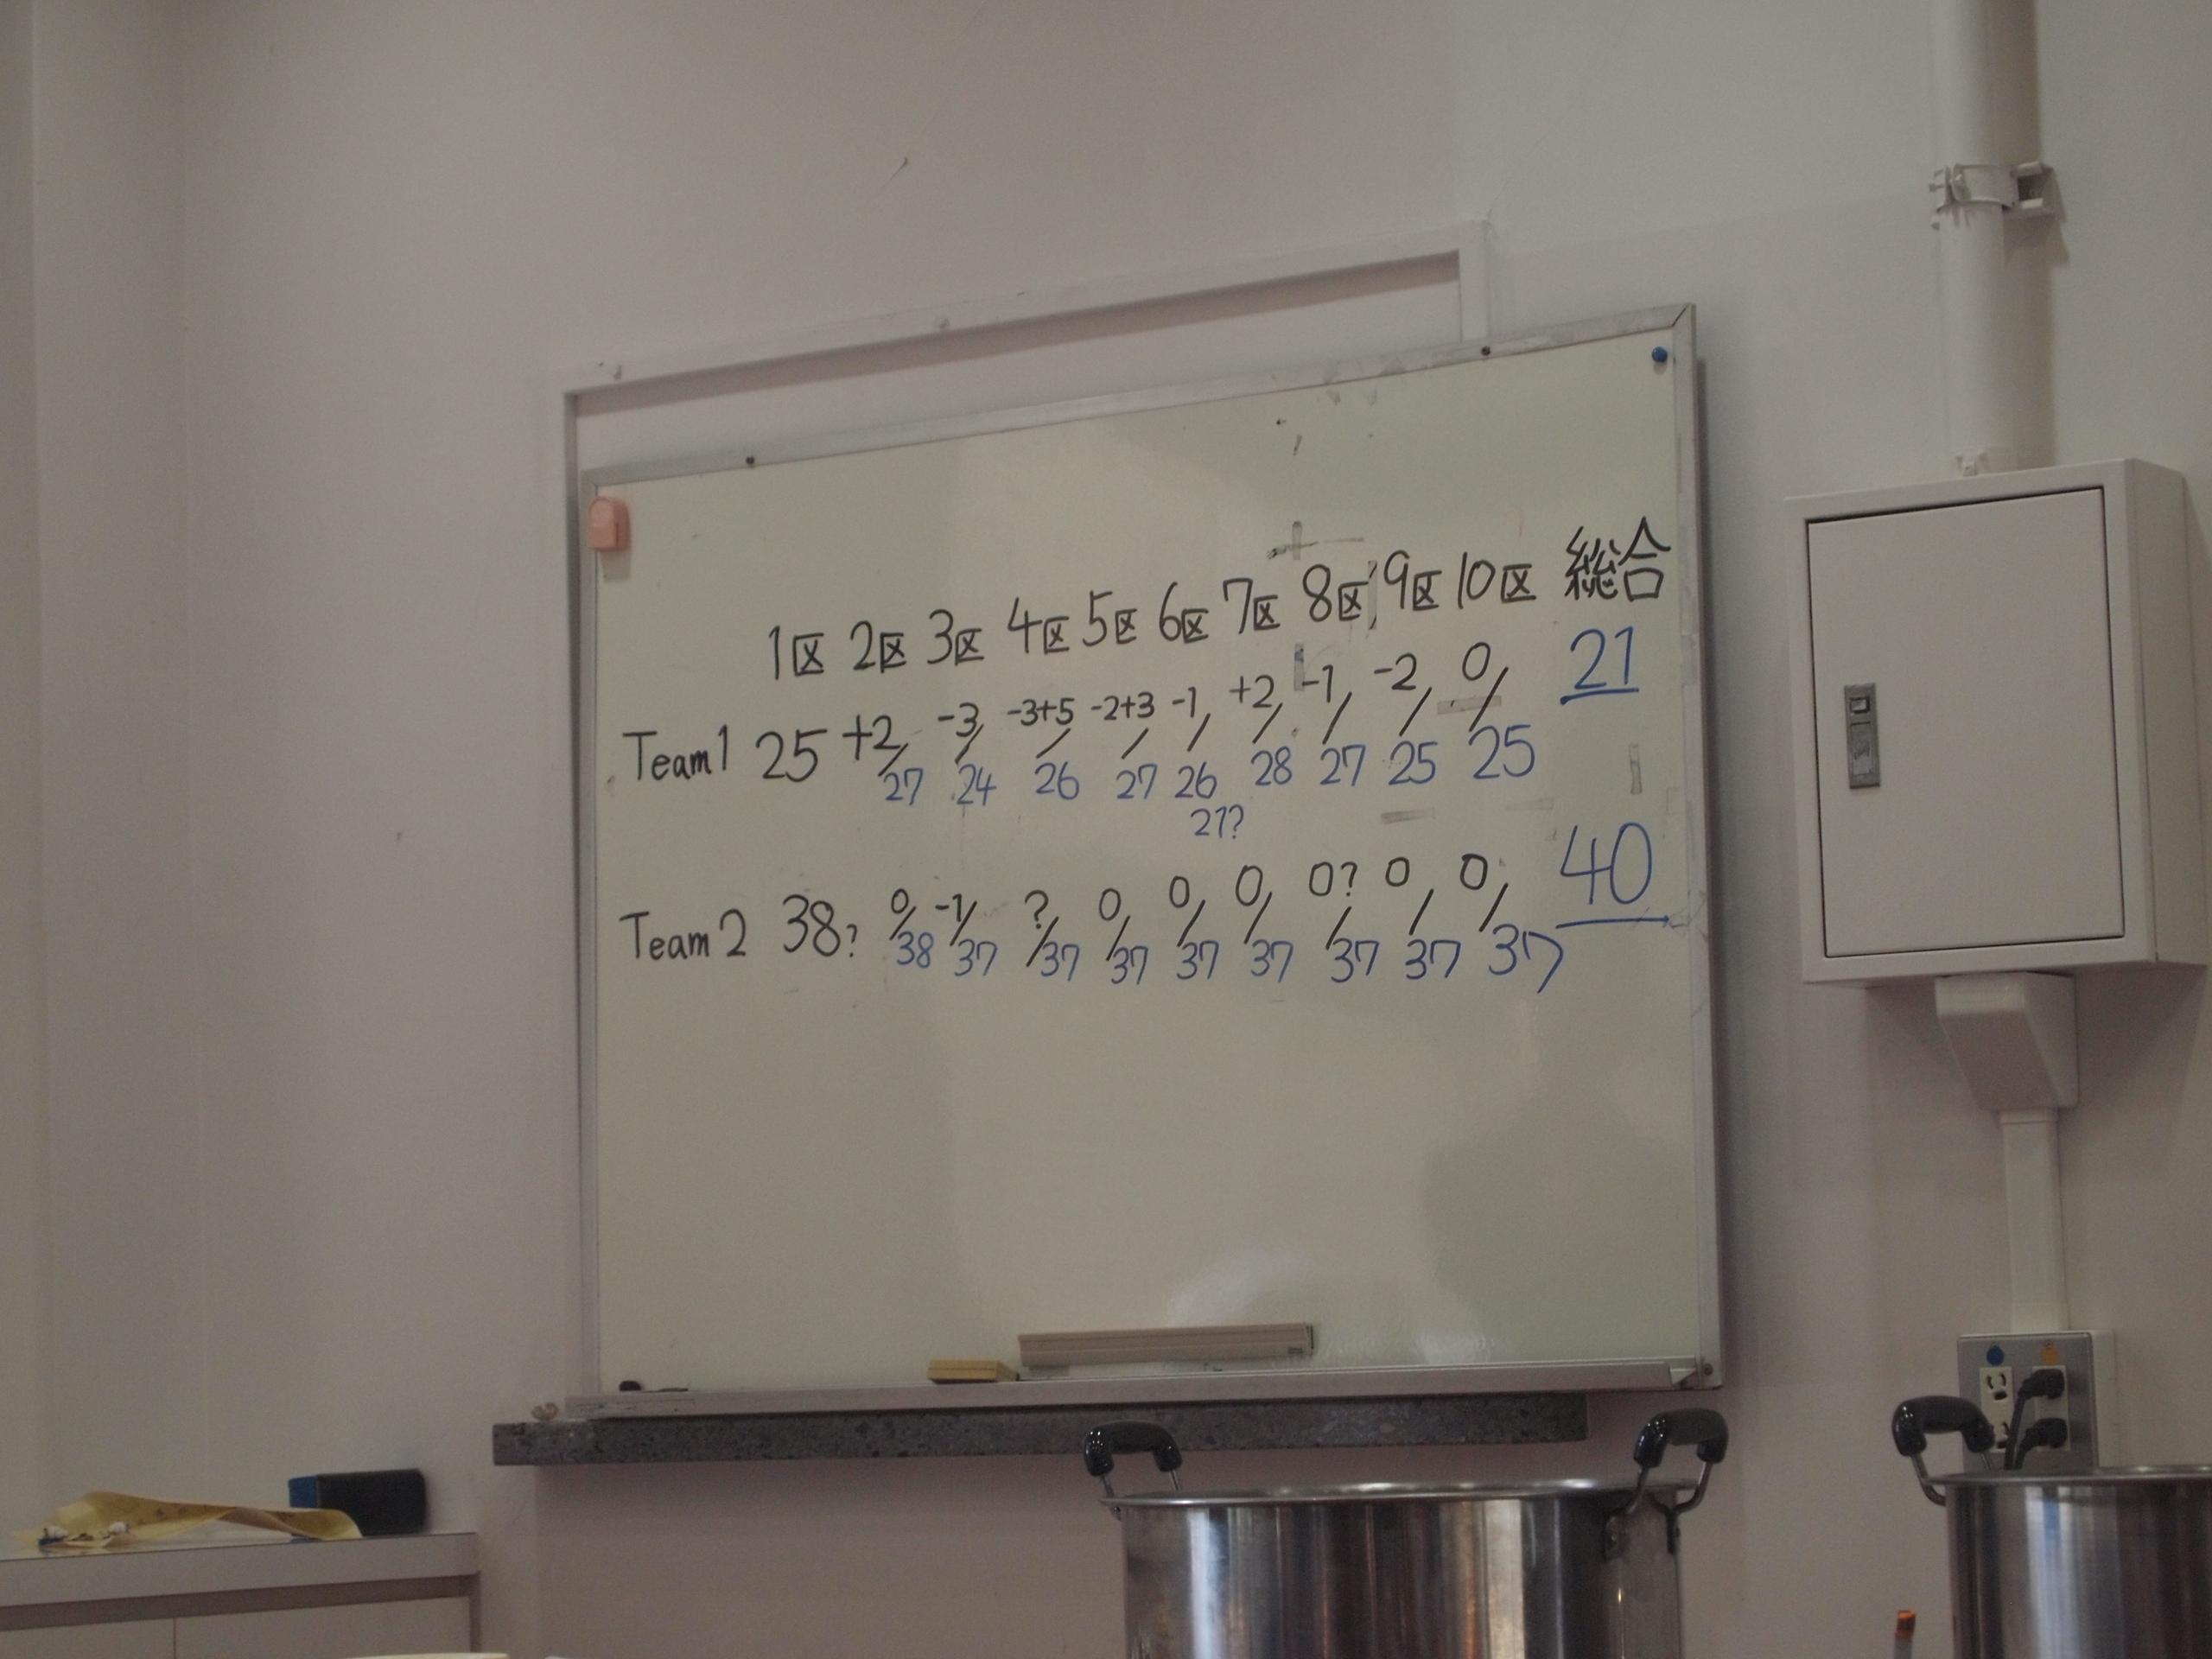 1区 2区 3区 4区 5区 6区 7区 8区 9区 10区 総合
Team1 25 +2/27 -3/24 -3+5/26 -2+3/27 -1/26 +2/28 -1/27 -2/25 0/25 21
21?
Team2 38? 0/38 -1/37 ?/37 0/37 0/37 0/37 0?/37 0/37 0/37 40